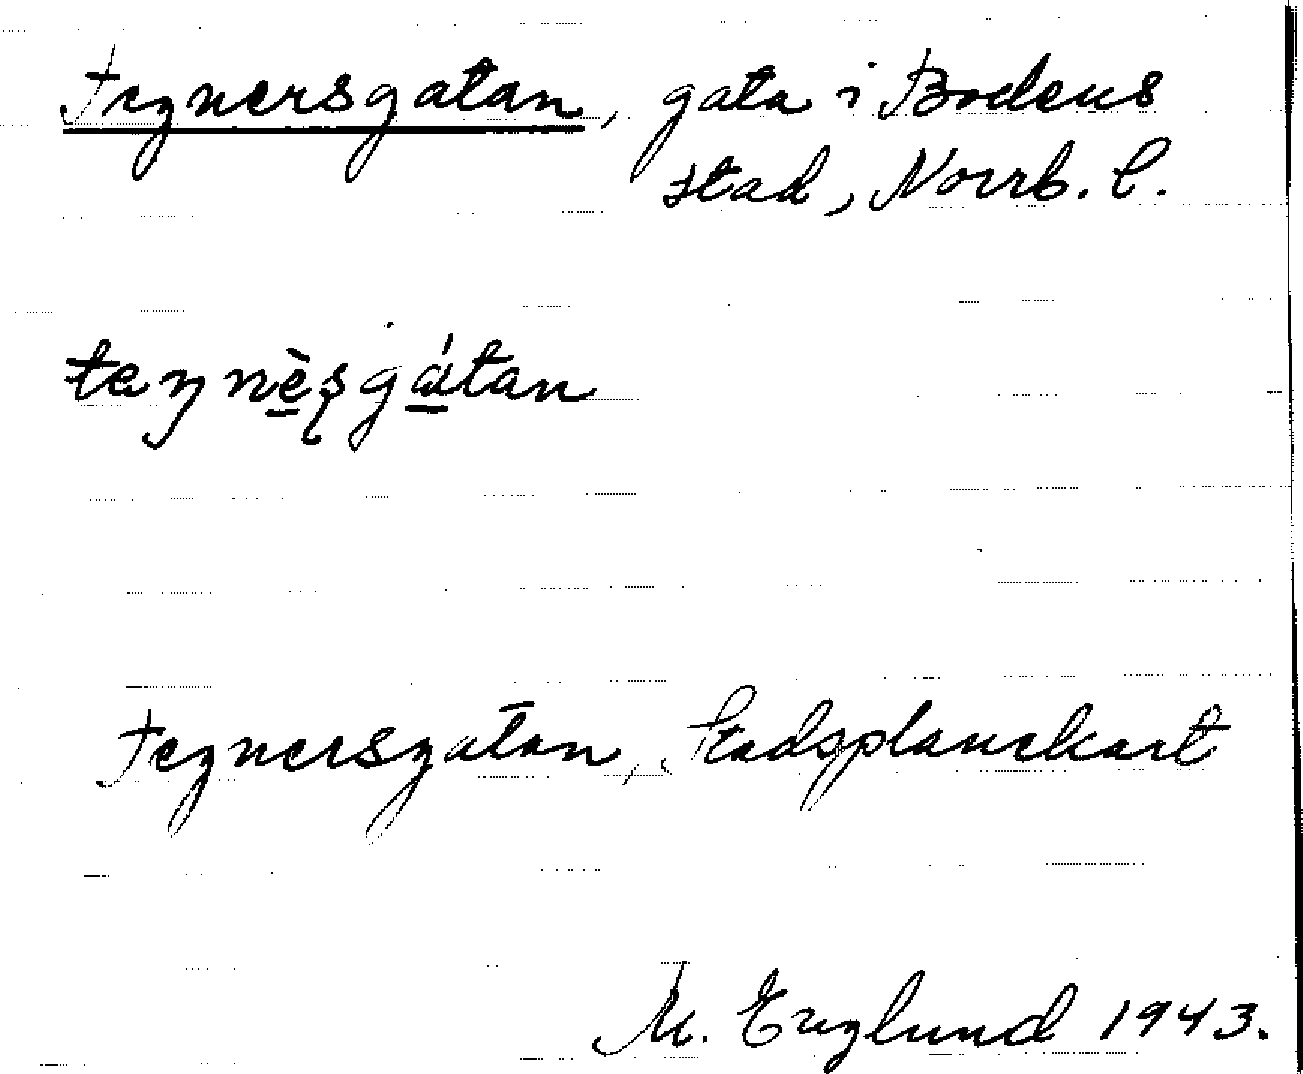 Tegnersgatan, gata i Bodens
stad, Norrb. l.
teŋnèʂgátan
Tegnersgatan, Stadsplanekart
M. Englund 1943.